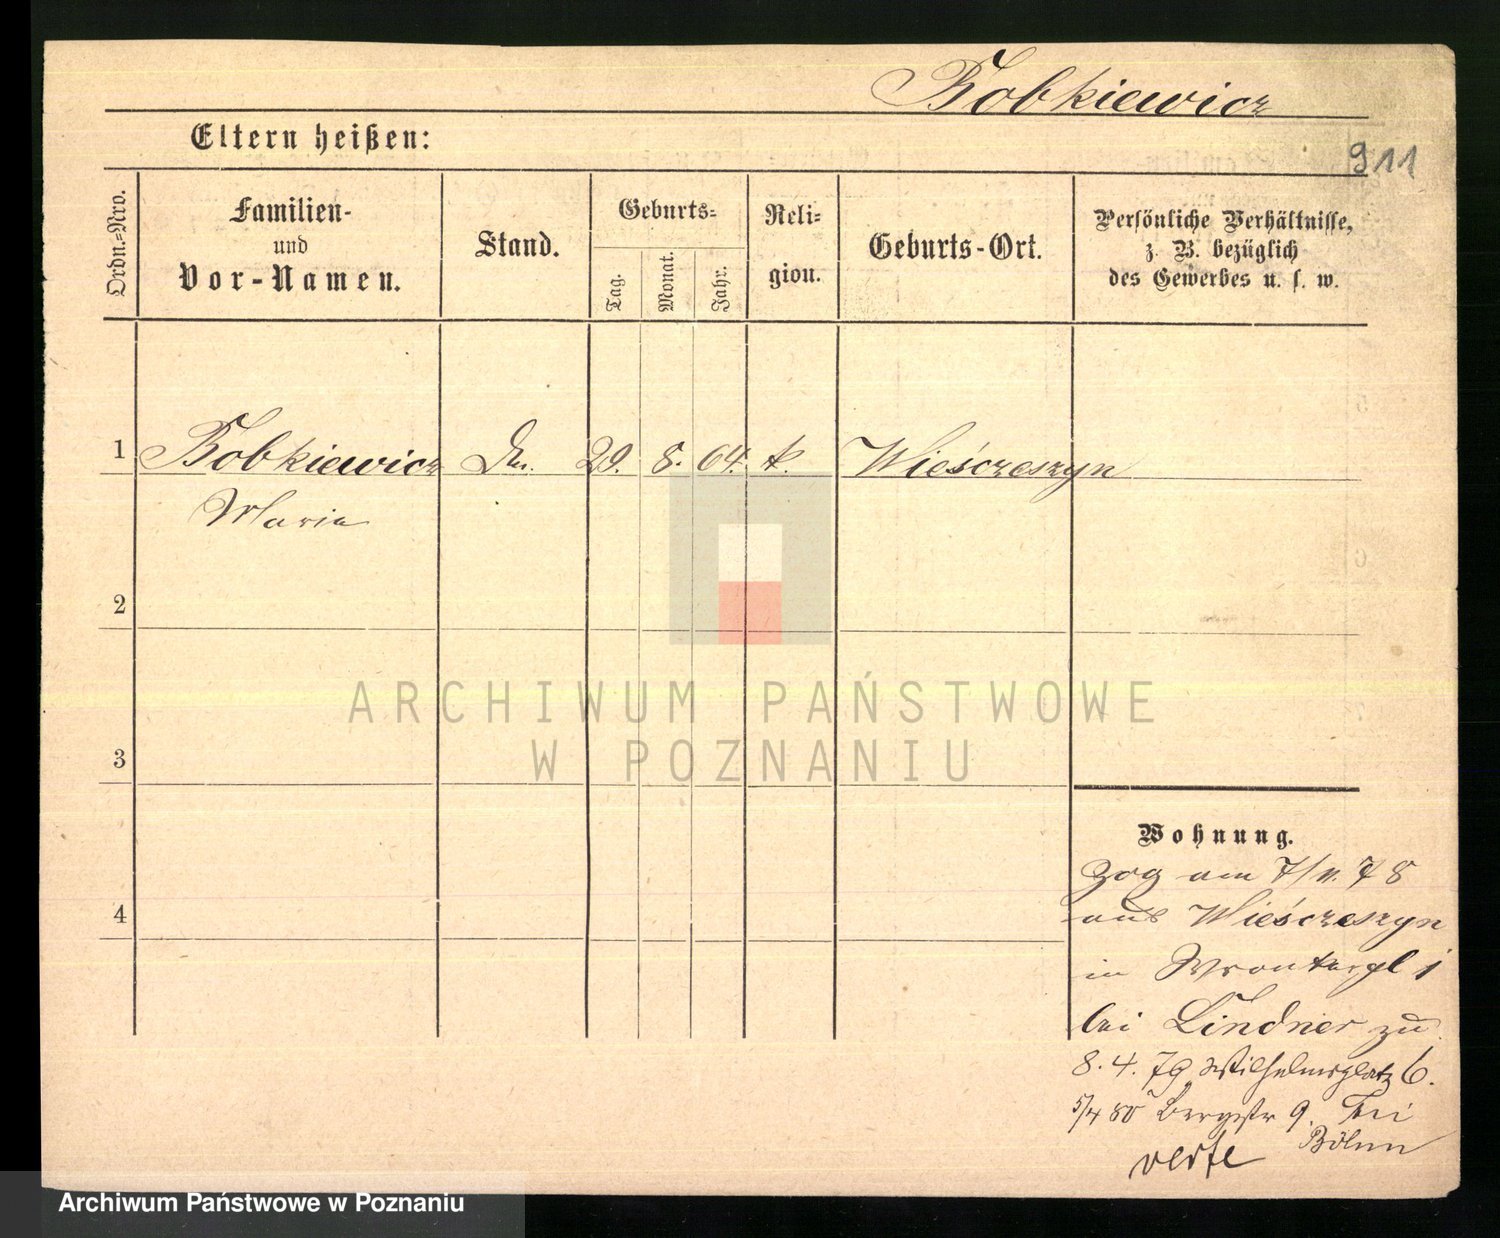 Bobkiewicz
Eltern heißen:
911
Ordn.-Nro.
Familien-
und
Vor-Namen.
Stand.
Geburts-
Tag.
Monat.
Jahr.
Reli-
gion.
Geburts-Ort.
Persönliche Verhältnisse,
z. B. bezüglich
des Gewerbes u. s. w.
1 Bobkiewicz 29. 8. 64. k. Wieśczeszyn
Maria
2
ARCHIWUM PAŃSTWOWE
W POZNANIU
3
Wohnung.
zog am 78
4
aus Wieśczeszyn
in 1
bei Lindner zu.
8. 4. 79 Wilhelmsplatz 6.
5/4 80 Bergstr 9. bei
Böhm
Archiwum Państwowe w Poznaniu